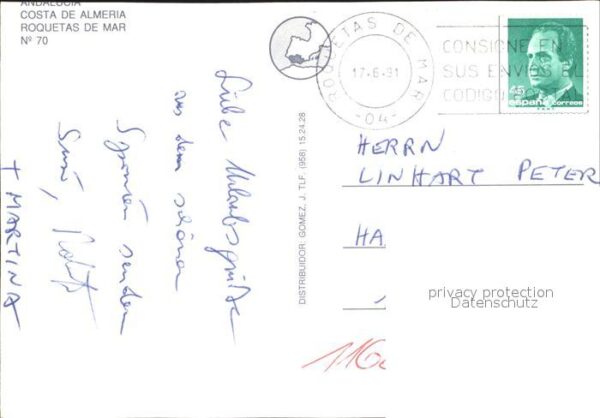 ANDALUCIA
COSTA DE ALMERIA
ROQUETAS DE MAR
Nº 70
Liebe Urlaubsgrüße
aus dem schönen
Spanien senden
Susi,
+ MARTINA
DISTRIBUIDOR GOMEZ, J. TLF. (958) 15.24.28
ROQUETAS DE MAR
17-6-91
-04-
CONSIGNE EN
SUS ENVIOS EL
CODIGO
45
españa correos
HERRN
LINHART PETER
HA
privacy protection
Datenschutz
116